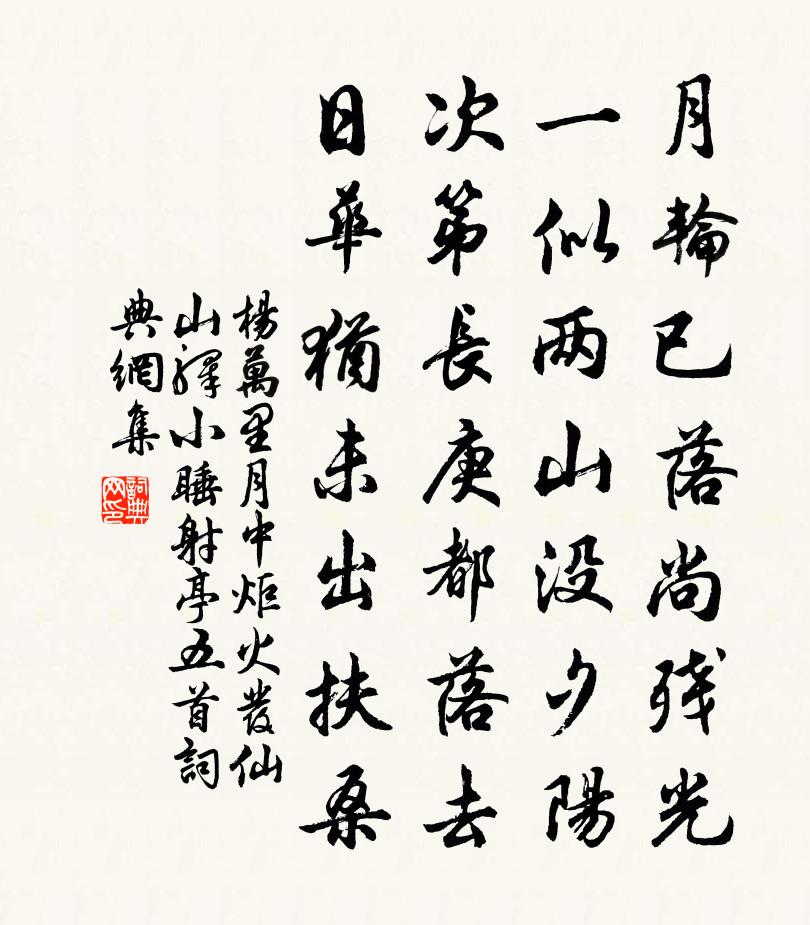 月輪已落尚残光
一似两山没夕陽
次第長庚都落去
日華猶未出扶桑
楊萬里月中炬火發仙
山驛小睡射亭五首詞
典網集
詞典
网印